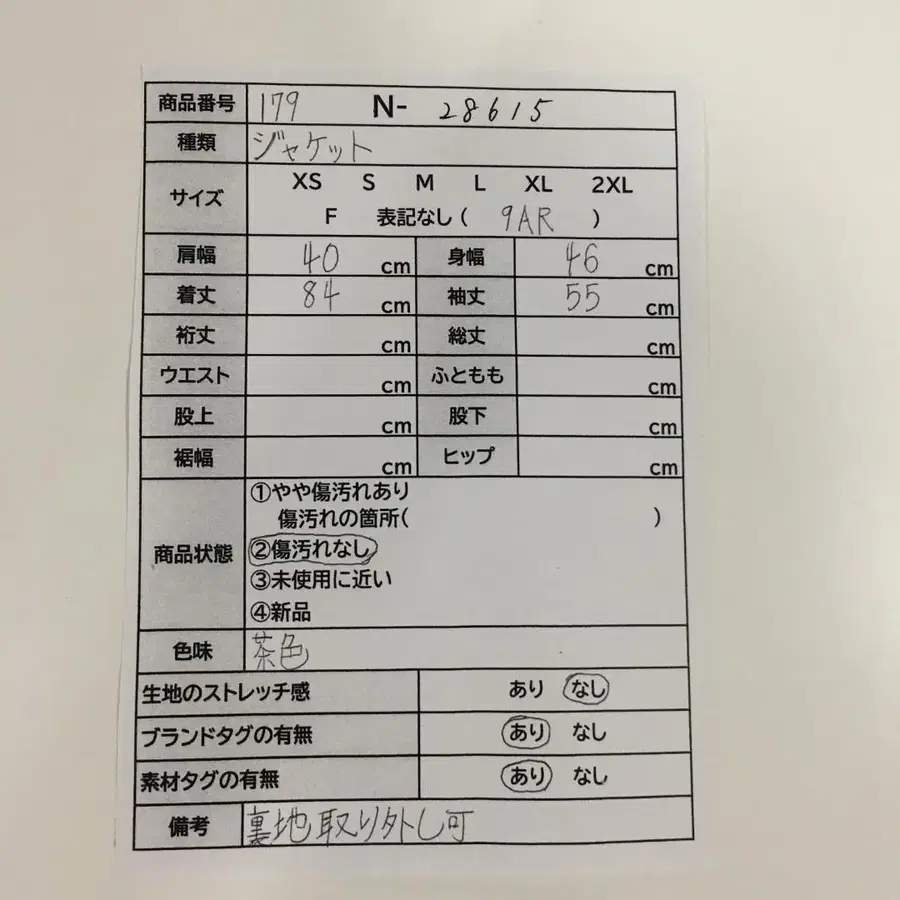 商品番号 179 N- 28615
種類 ジャケット
サイズ XS S M L XL 2XL
F 表記なし( 9AR )
肩幅 40 cm 身幅 46 cm
着丈 84 cm 袖丈 55 cm
裄丈 cm 総丈 cm
ウエスト cm ふともも cm
股上 cm 股下 cm
裾幅 cm ヒップ cm
商品状態 ①やや傷汚れあり
傷汚れの箇所( )
②傷汚れなし
③未使用に近い
④新品
色味 茶色
生地のストレッチ感 あり なし
ブランドタグの有無 あり なし
素材タグの有無 あり なし
備考 裏地取り外し可